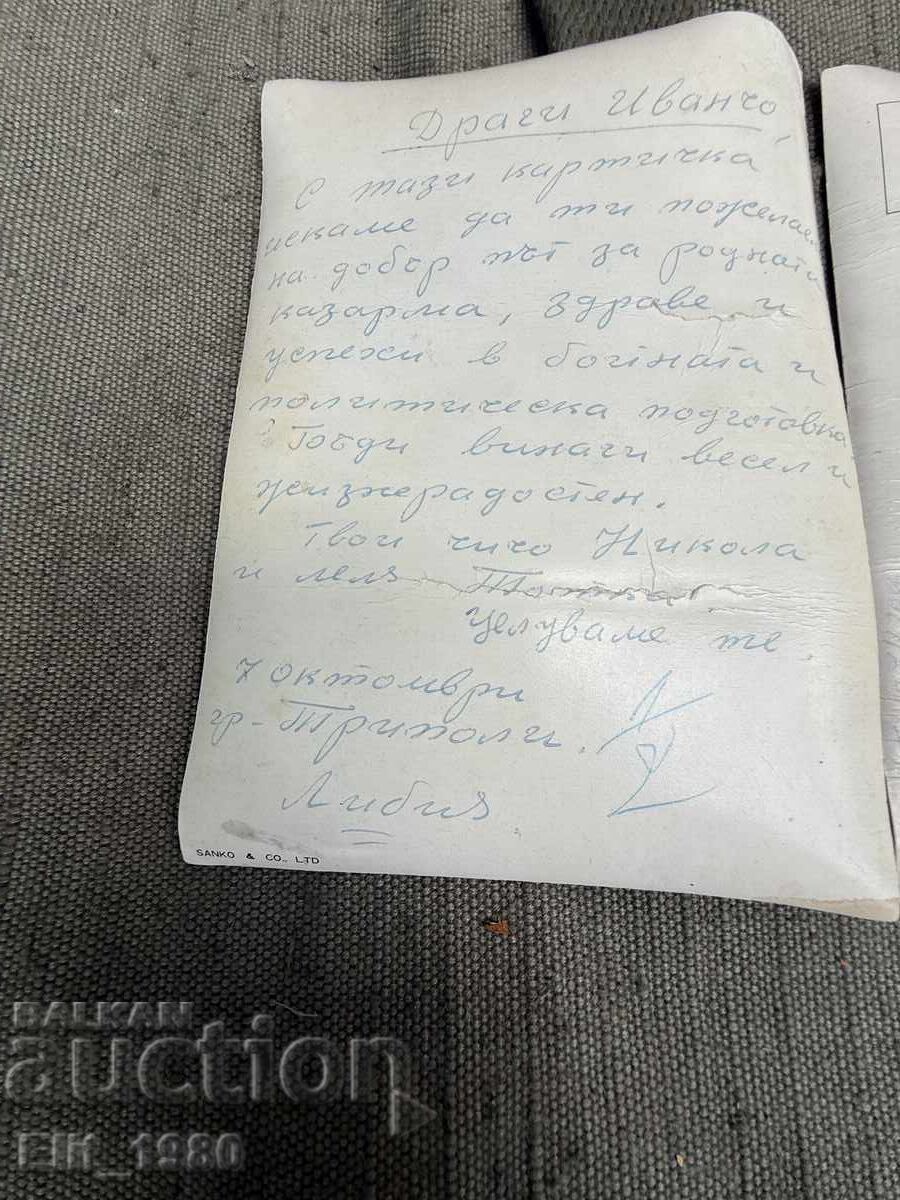 Драги Иванчо,
С тази картичка
искаме да ти пожелаем
на добър път за родната
казарма, здраве и
успехи в бойната и
политическа подготовка
Бъди винаги весел и
жизнерадостен.
Твои чичо Никола
и леля
Целуваме те.
7 октомври
гр. Триполи.
Либия
SANKO & CO., LTD
BALKAN
auction
EIK_1980